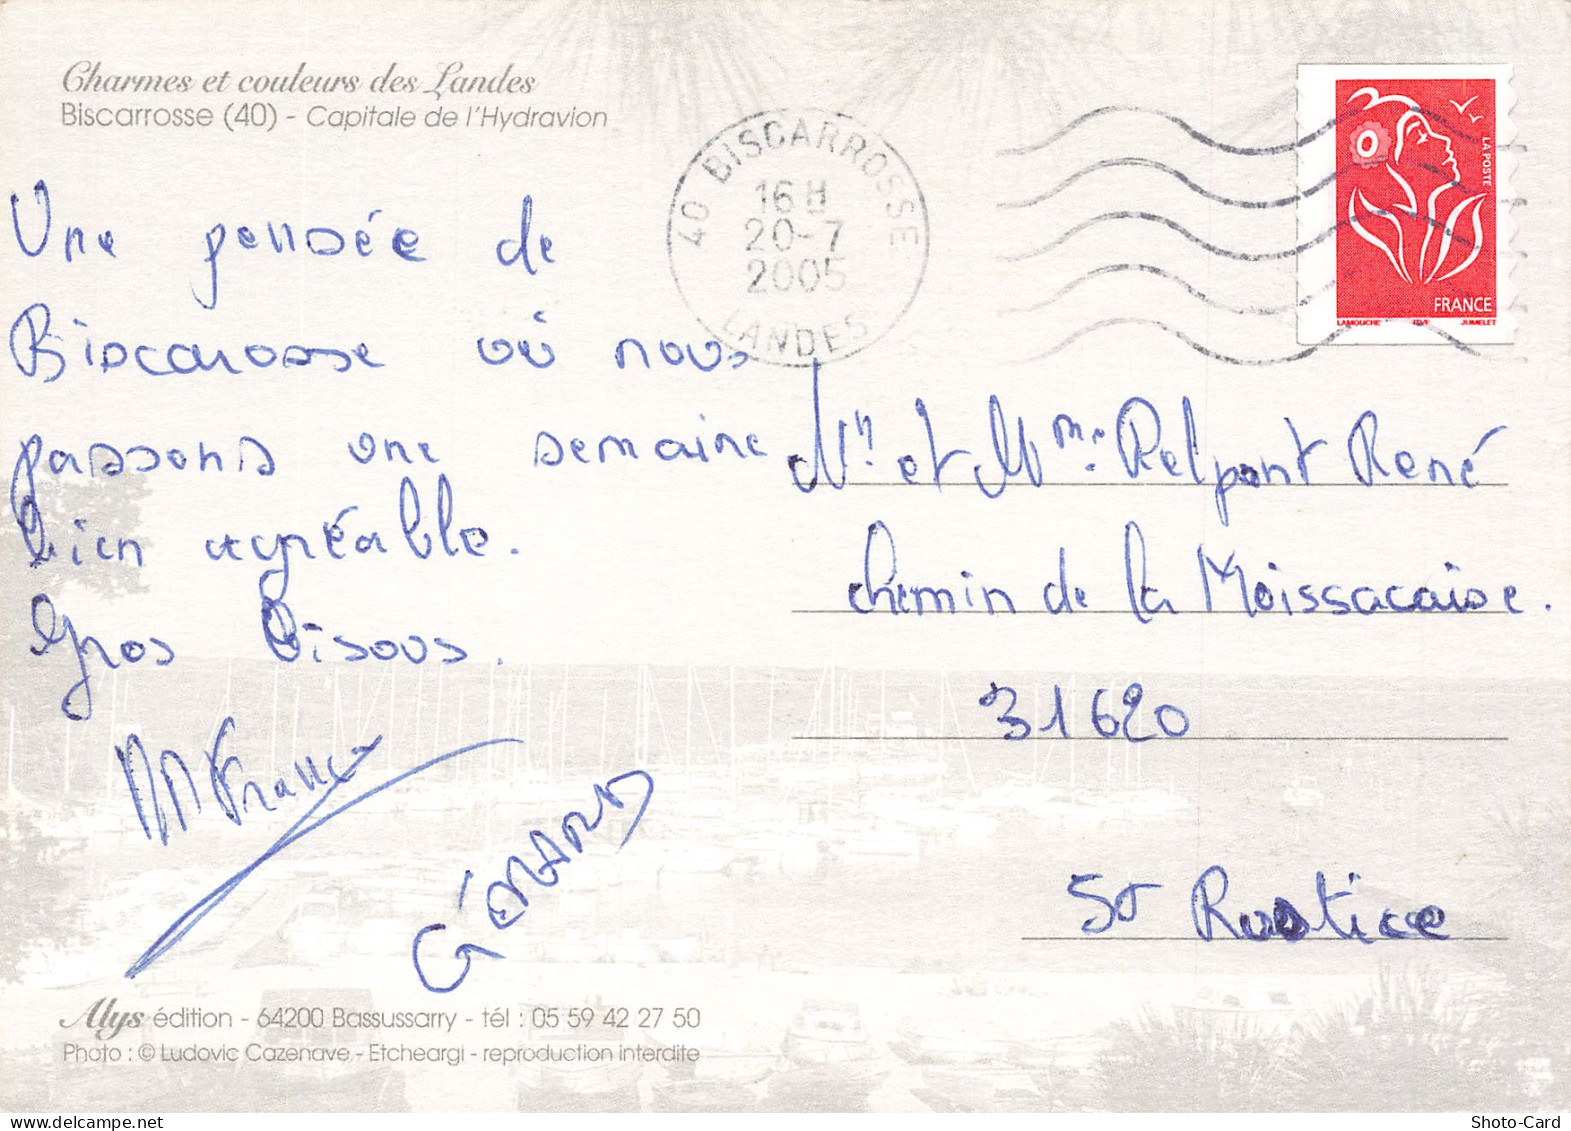 Charmes et couleurs des Landes
Biscarrosse (40) - Capitale de l'Hydravion
40 BISCARROSSE
16 H
20-7
2005
LANDES
LA POSTE
FRANCE
LAMOUCHE ITVF JUMELET
Une pensée de
Biscarosse où nous
passons une semaine
bien agréable.
Gros bisous.
M France
GÉRARD
Mr et Mme Relpont René
chemin de la Moissacaise.
31620
St Rustice
Alys édition - 64200 Bassussarry - tél : 05 59 42 27 50
Photo : © Ludovic Cazenave - Etcheargi - reproduction interdite
Shoto-Card
www.delcampe.net